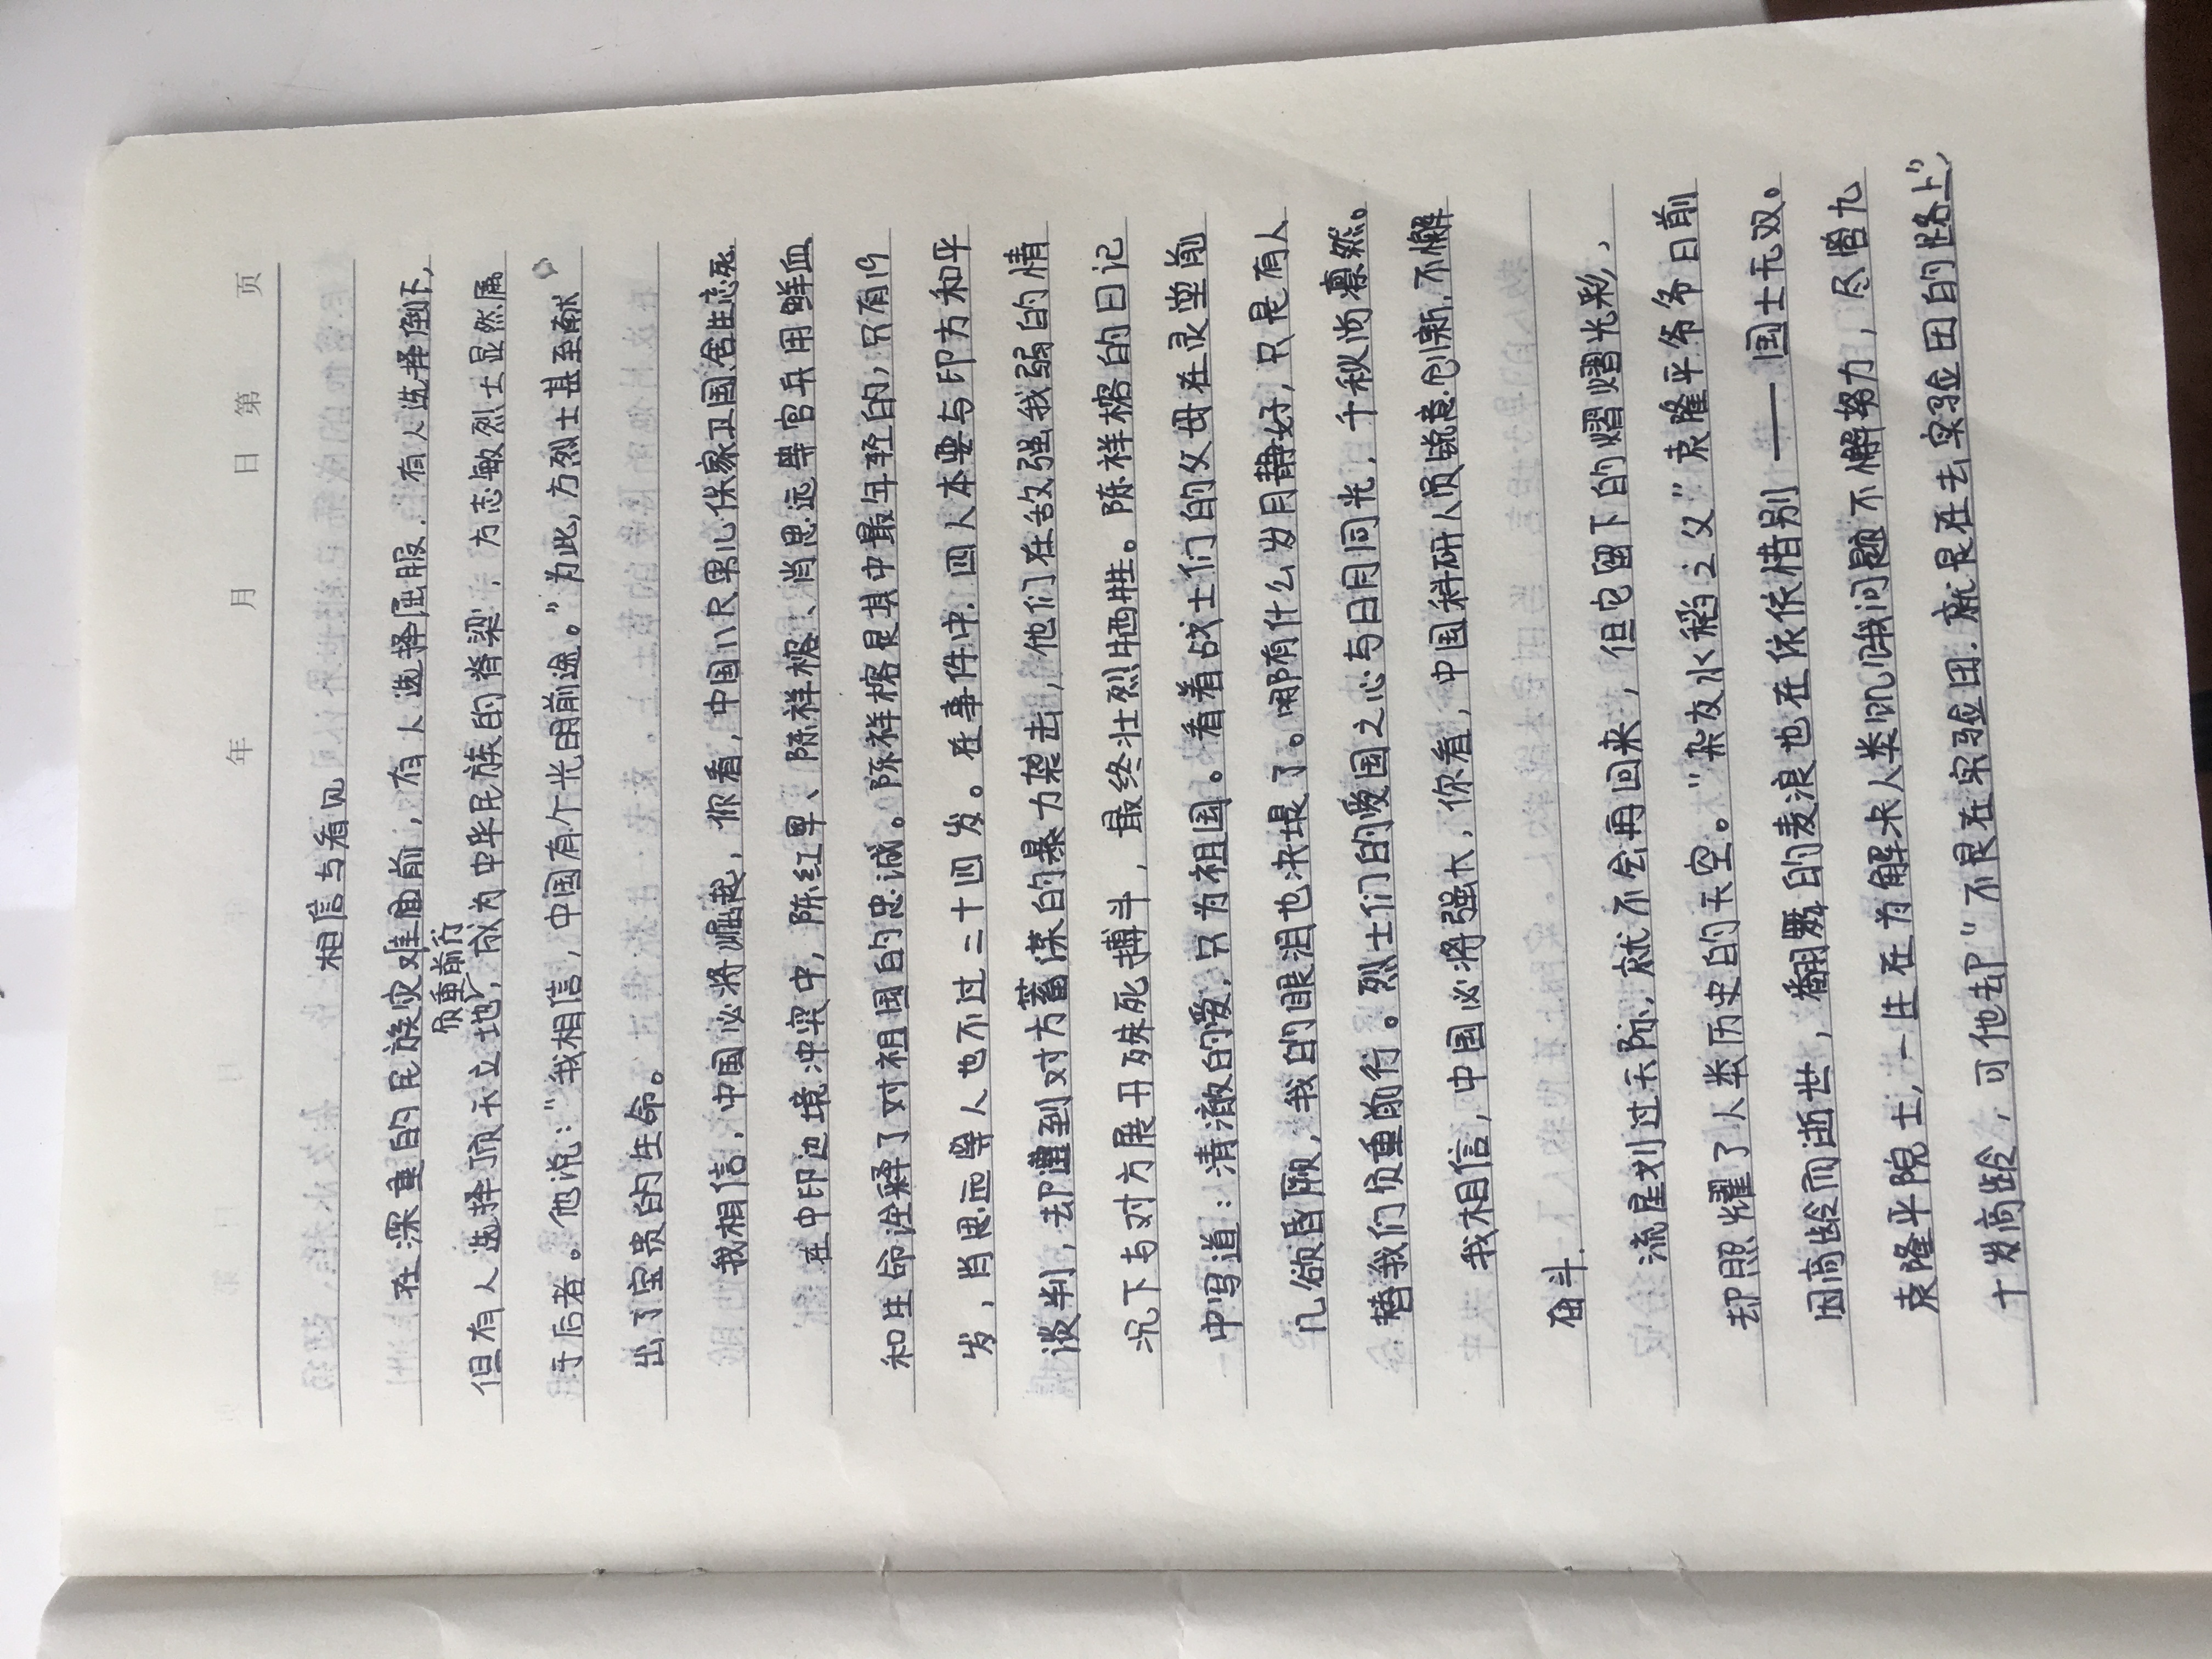 年 月 日 第 页
相信与看见
在深重的民族灾难面前，有人选择屈服，有人选择倒下，
负重前行
但有人选择顶天立地，成为中华民族的脊梁，方志敏烈士显然属
于后者。他说：“我相信，中国有个光明前途。”为此，方烈士甚至献
出了宝贵的生命。
我相信，中国必将崛起，你看，中国儿民男儿保家卫国舍生忘死
在中印边境冲突中，陈红军、陈祥榕、肖思远等官兵用鲜血
和生命诠释了对祖国的忠诚。陈祥榕是其中最年轻的，只有19
岁，肖思远等人也不过二十四岁。在事件中，四人本要与印方和平
谈判，却遭到对方蓄谋的暴力袭击，他们在敌强我弱的情
况下与对方展开殊死搏斗，最终壮烈牺牲。陈祥榕的日记
中写道：清澈的爱，只为祖国。看着战士们的父母在灵堂前
几欲昏厥，我的眼泪也决堤了。哪有什么岁月静好，只是有人
替我们负重前行。烈士们的爱国之心与日月同光，千秋尚凛然。
我相信，中国必将强大，你看，中国科研人员锐意创新，不懈
奋斗.
流星划过天际，就不会再回来，但它留下的熠熠光彩，
却照耀了人类历史的天空。“杂交水稻之父”袁隆平爷爷日前
因高龄而逝世，翻飞的麦浪也在依依惜别——国士无双。
袁隆平院士，一生在为解决人类饥饿问题不懈努力，尽管九
十岁高龄，可他却“不是在实验田，就是在去实验田的路上”，